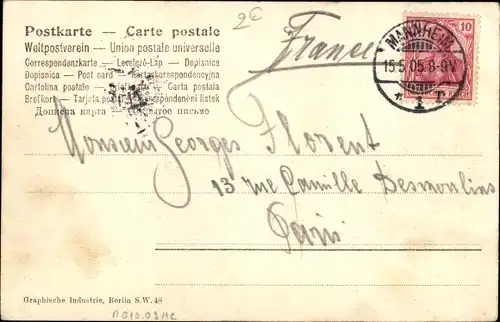 Postkarte — Carte postale
Weltpostverein — Union postale universelle
Correspondenzkarte — Levelező-Lap — Dopisnice
Dopisnica — Post card — Karta korespondencyjna
Cartolina postale — Carta postala
Brefkort — Tarjeta postal — Korespondenční lístek
Дописна карта — Открытое письмо
2€
France
10
MANNHEIM
15.5.05.8-9V
* 1 r.
Monsieur Georges Florent
13 rue Camille Desmoulins
Paris
Graphische Industrie, Berlin S.W. 48